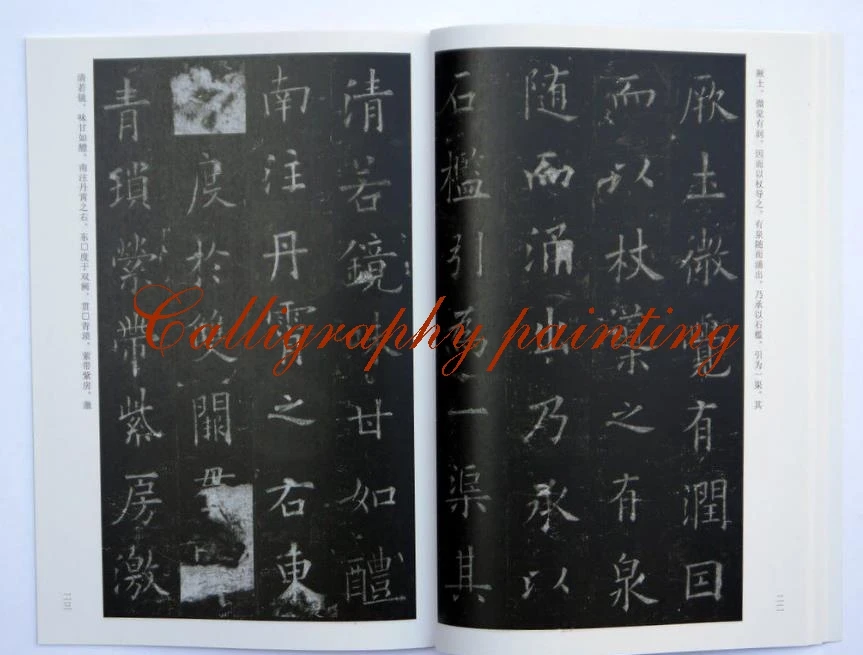 厥土、微觉有润、因而以杖导之、有泉随而涌出、乃承以石槛、引为一渠、其
厥土微覺有潤因
而以杖導之有泉
随而涌出乃承以
石檻引為一渠其
二二
清若鏡味甘如醴
南注丹霄之右東
度於雙闕貫
青瑣縈帶紫房激
清若镜、味甘如醴、南注丹霄之右、东□度于双阙、贯□青琐、萦带紫房、激
二三
Calligraphy painting